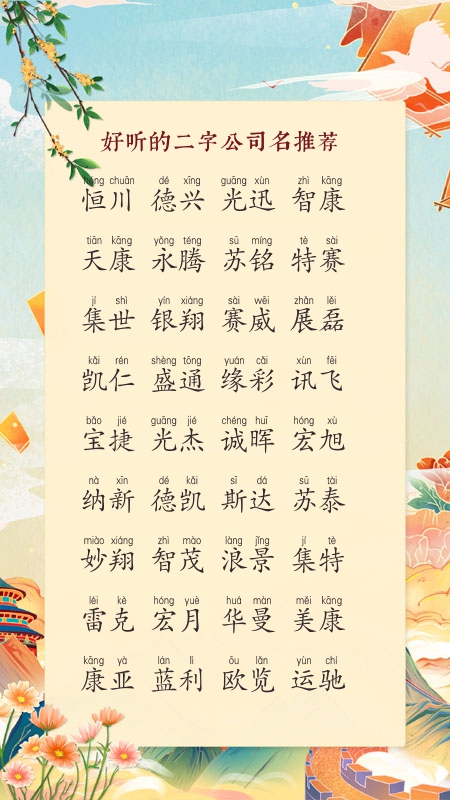 好听的二字公司名推荐
héng chuān dé xīng guāng xùn zhì kāng
恒川 德兴 光迅 智康
tiān kāng yǒng téng sū míng tè sài
天康 永腾 苏铭 特赛
jí shì yín xiáng sài wēi zhǎn lěi
集世 银翔 赛威 展磊
kǎi rén shèng tōng yuán cǎi xùn fēi
凯仁 盛通 缘彩 讯飞
bǎo jié guāng jié chéng huī hóng xù
宝捷 光杰 诚晖 宏旭
nà xīn dé kǎi sī dá sū tài
纳新 德凯 斯达 苏泰
miào xiáng zhì mào làng jǐng jí tè
妙翔 智茂 浪景 集特
léi kè hóng yuè huá màn měi kāng
雷克 宏月 华曼 美康
kāng yà lán lì ōu lǎn yùn chí
康亚 蓝利 欧览 运驰